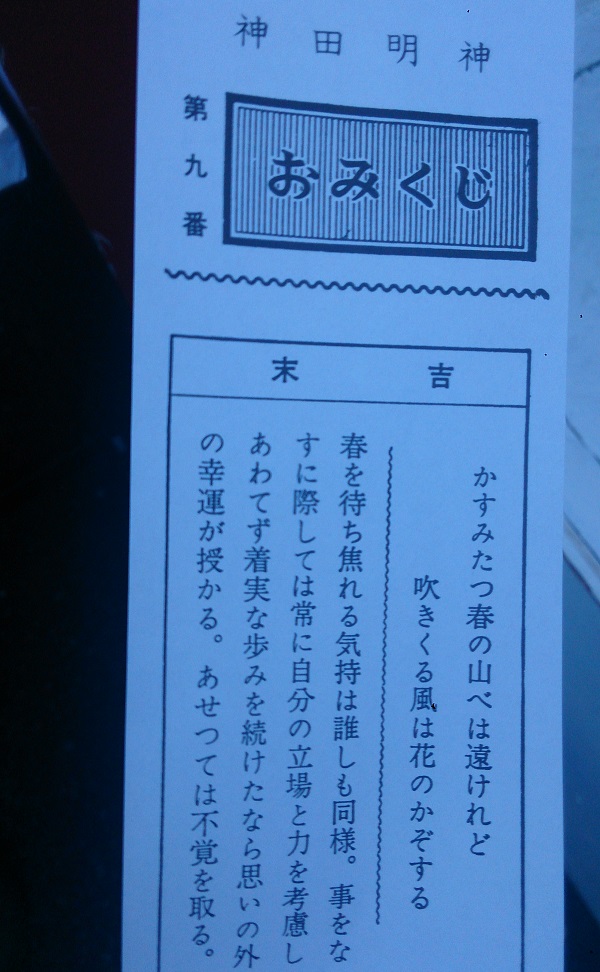 神田明神
第九番
おみくじ
末吉
かすみたつ春の山べは遠けれど
吹きくる風は花のかぞする
春を待ち焦れる気持は誰しも同様。事をな
すに際しては常に自分の立場と力を考慮し
あわてず着実な歩みを続けたなら思いの外
の幸運が授かる。あせつては不覚を取る。